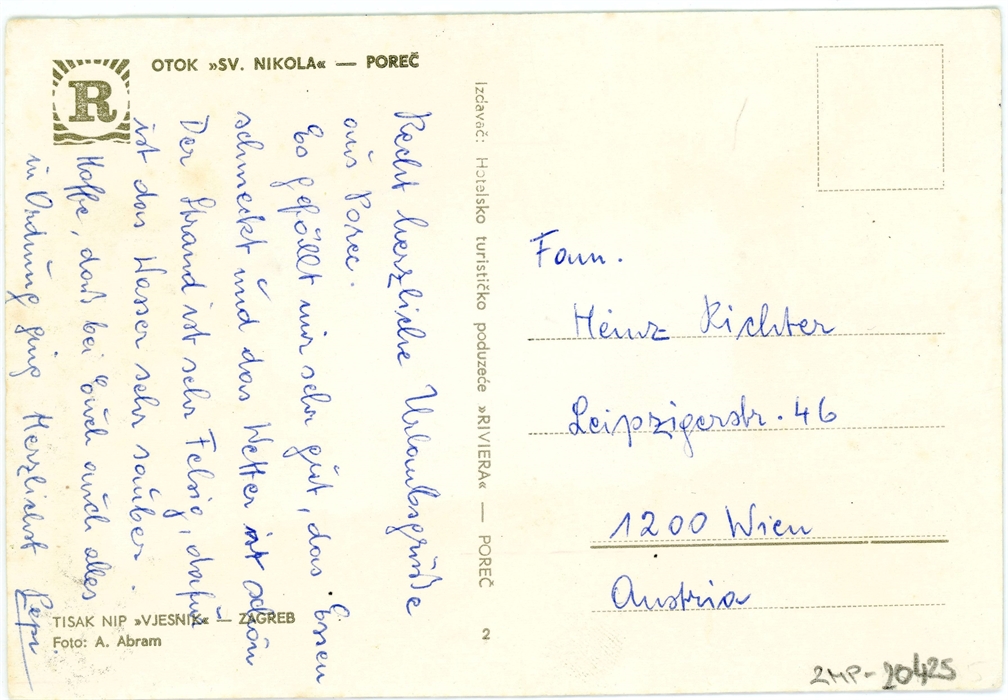 R
OTOK »SV. NIKOLA« — POREČ
Recht herzliche Urlaubsgrüße
aus Porec.
Es gefällt mir sehr gut, das Essen
schmeckt und das Wetter ist schön
Der Strand ist sehr Felsig, dafür
ist das Wasser sehr sauber.
Hoffe, daß bei Euch auch alles
in Ordnung ging Herzlichst Pepi
TISAK NIP »VJESNIK« — ZAGREB
Foto: A. Abram
Izdavač: Hotelsko turističko poduzeće »RIVIERA« — POREČ
2
Fam.
Heinz Richter
Leipzigerstr. 46
1200 Wien
Austria
2MP-20425